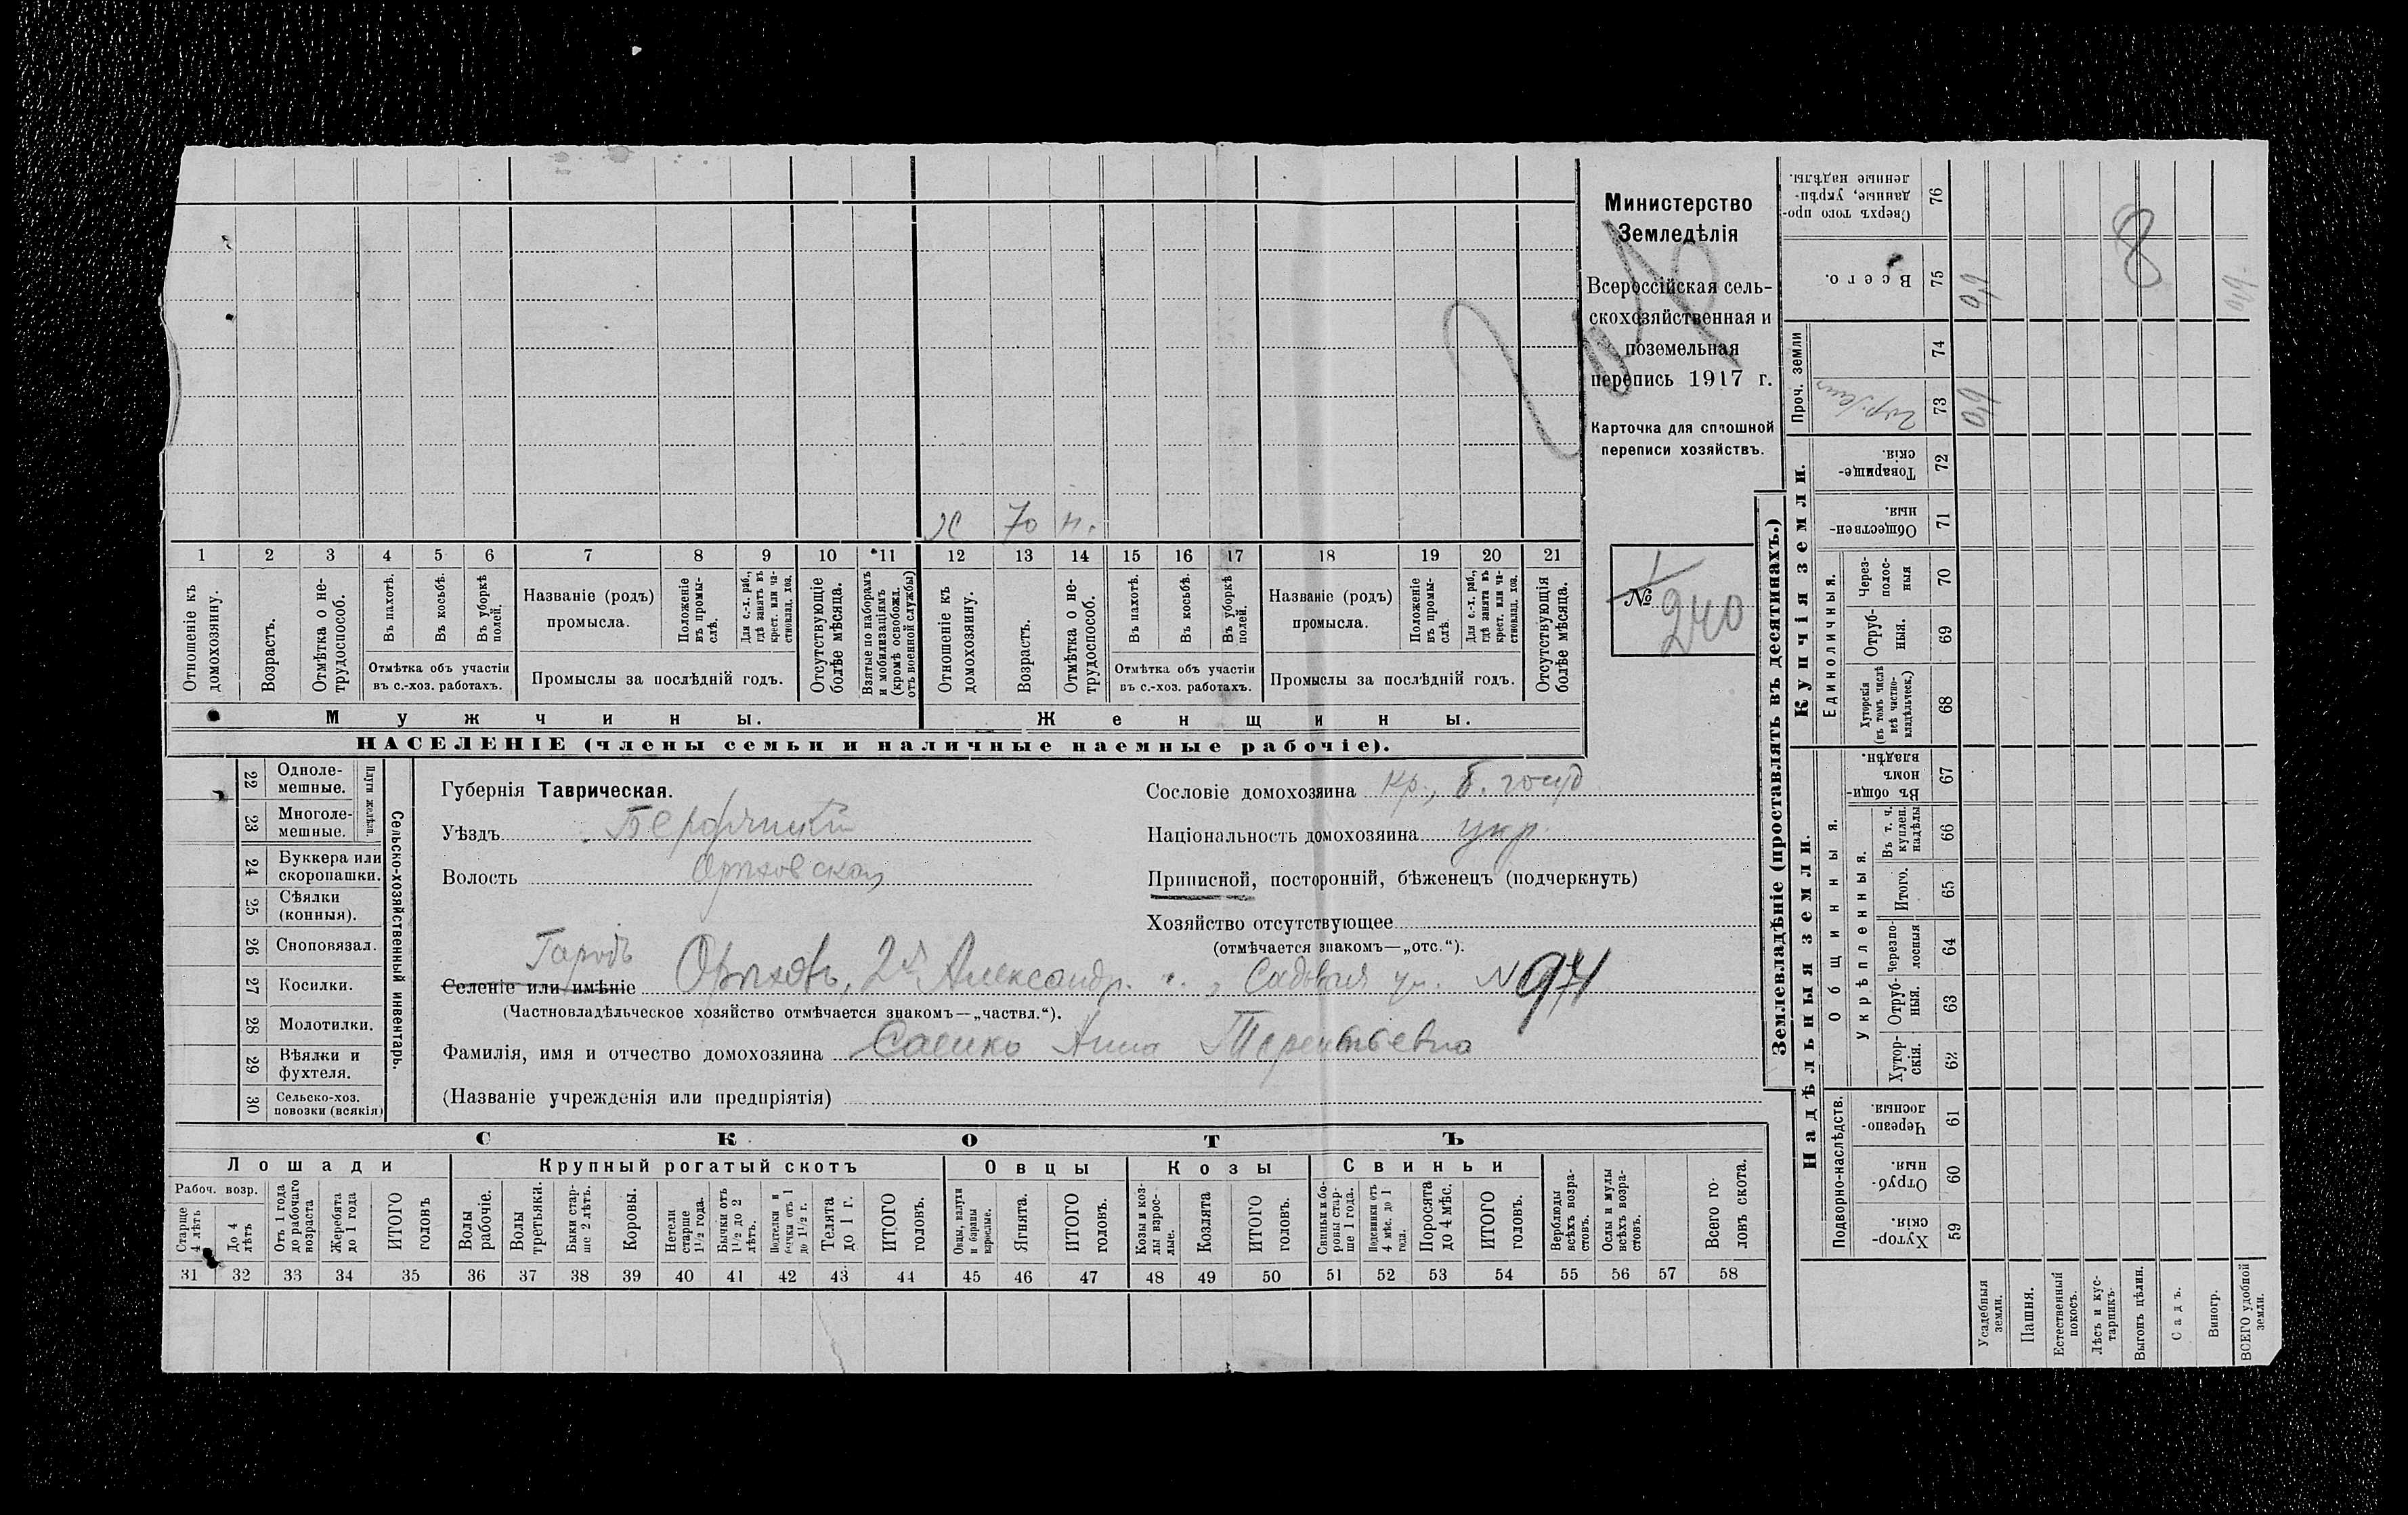 Министерство
Земледѣлія
Всероссійская сель-
скохозяйственная и
поземельная
перепись 1917 г.
Карточка для сплошной
переписи хозяйствъ.
№ 1
240
Х 70 н.
1 2 3 4 5 6 7 8 9 10 11 12 13 14 15 16 17 18 19 20 21
Отношеніе къ домохозяину.
Возрастъ.
Отмѣтка о не-трудоспособ.
Въ пахотѣ.
Въ косьбѣ.
Въ уборкѣ полей.
Отмѣтка объ участіи въ с.-хоз. работахъ.
Названіе (родъ) промысла.
Положеніе въ промы-слѣ.
Для с.-х. раб., гдѣ занятъ въ крест. или ча-стновлад. хоз.
Промыслы за послѣдній годъ.
Отсутствующіе болѣе мѣсяца.
Взятые по наборамъ и мобилизаціямъ (кромѣ освобожд. отъ военной службы)
Отношеніе къ домохозяину.
Возрастъ.
Отмѣтка о не-трудоспособ.
Въ пахотѣ.
Въ косьбѣ.
Въ уборкѣ полей.
Отмѣтка объ участіи въ с.-хоз. работахъ.
Названіе (родъ) промысла.
Положеніе въ промы-слѣ.
Для с.-х. раб., гдѣ занята въ крест. или ча-стновлад. хоз.
Промыслы за послѣдній годъ.
Отсутствующія болѣе мѣсяца.
Мужчины.
Женщины.
НАСЕЛЕНІЕ (члены семьи и наличные наемные рабочіе).
22 Одноле-мешные.
23 Многоле-мешные.
Плуги желѣзн.
24 Буккера или скоропашки.
25 Сѣялки (конныя).
26 Сноповязал.
27 Косилки.
28 Молотилки.
29 Вѣялки и фухтеля.
30 Сельско-хоз. повозки (всякія)
Сельско-хозяйственный инвентарь.
Губернія Таврическая.
Уѣздъ Бердянскій
Волость Орѣховская
Городъ
Селеніе или имѣніе Орѣховъ, 2й Александр. , Садовая ул. N 971
(Частновладѣльческое хозяйство отмѣчается знакомъ—„частвл.“).
Фамилія, имя и отчество домохозяина Саенко Анна Терентьевна
(Названіе учрежденія или предпріятія)
Сословіе домохозяина кр., б. госуд
Національность домохозяина укр.
Приписной, посторонній, бѣженецъ (подчеркнуть)
Хозяйство отсутствующее
(отмѣчается знакомъ—„отс.“).
СКОТЪ
Лошади
Крупный рогатый скотъ
Овцы
Козы
Свиньи
Рабоч. возр.
Старше 4 лѣтъ
До 4 лѣтъ
Отъ 1 года до рабочаго возраста
Жеребята до 1 года
ИТОГО головъ
Волы рабочіе.
Волы третьяки.
Быки стар-ше 2 лѣтъ.
Коровы.
Нетели старше 1½ года.
Бычки отъ 1½ до 2 лѣтъ.
Подтелки и бычки отъ 1 до 1½ г.
Телята до 1 г.
ИТОГО головъ.
Овцы, валухи и бараны взрослые.
Ягнята.
ИТОГО головъ.
Козы и коз-лы взрос-лые.
Козлята
ИТОГО головъ.
Свиньи и бо-ровы стар-ше 1 года.
Подсвинки отъ 4 мѣс. до 1 года.
Поросята до 4 мѣс.
ИТОГО головъ.
Верблюды всѣхъ возра-стовъ.
Ослы и мулы всѣхъ возра-стовъ.
Всего го-ловъ скота.
31 32 33 34 35 36 37 38 39 40 41 42 43 44 45 46 47 48 49 50 51 52 53 54 55 56 57 58
Землевладѣніе (проставлять въ десятинахъ.)
Надѣльныя земли.
Купчія земли.
Проч. земли
Подворно-наслѣдств.
Общинныя.
Укрѣпленныя.
Единоличныя.
Сверхъ того про-данные, укрѣп-ленные надѣлы. 76
Всего. 75
74
73
Товарище-скія. 72
Обществен-ныя. 71
Через-полос-ныя 70
Отруб-ныя. 69
Хуторскія (въ томъ числѣ всѣ частно-владѣльческ.) 68
Въ общин-номъ владѣн. 67
Въ т. ч. куплен. надѣлы 66
Итого. 65
Черезпо-лосныя 64
Отруб-ныя. 63
Хутор-скія. 62
Черезпо-лосныя. 61
Отруб-ныя. 60
Хутор-скія. 59
Усадебныя земли.
Пашня.
Естественный покосъ.
Лѣсъ и кус-тарникъ.
Выгонъ цѣлин.
Садъ.
Виногр.
ВСЕГО удобной земли.
8